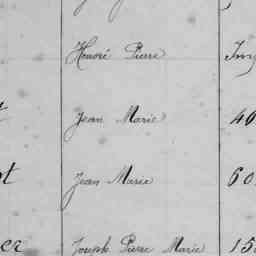 Honoré Pierre
Jean Marie 40
Jean Marie 60
Joseph Pierre Marie 15